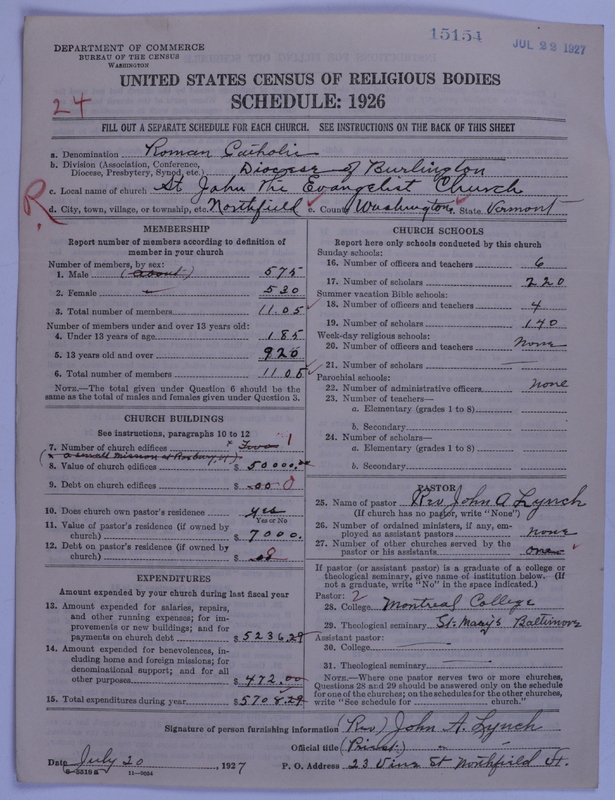 15154
JUL 22 1927
DEPARTMENT OF COMMERCE
BUREAU OF THE CENSUS
WASHINGTON
UNITED STATES CENSUS OF RELIGIOUS BODIES
24
SCHEDULE: 1926
FILL OUT A SEPARATE SCHEDULE FOR EACH CHURCH. SEE INSTRUCTIONS ON THE BACK OF THIS SHEET
a. Denomination Roman Catholic
b. Division (Association, Conference, Diocese, Presbytery, Synod, etc.) Diocese of Burlington
c. Local name of church St John the Evangelist Church
R
d. City, town, village, or township, etc. Northfield e. County Washington f. State Vermont
MEMBERSHIP
Report number of members according to definition of
member in your church
Number of members, by sex:
1. Male (about) 575
2. Female 530
3. Total number of members 1105
Number of members under and over 13 years old:
4. Under 13 years of age 185
5. 13 years old and over 920
6. Total number of members 1105
NOTE.—The total given under Question 6 should be the
same as the total of males and females given under Question 3.
CHURCH BUILDINGS
See instructions, paragraphs 10 to 12
7. Number of church edifices x Two 1
(x a small mission at Roxbury, Vt)
8. Value of church edifices $ 50000.00
9. Debt on church edifices $ 00 0
10. Does church own pastor's residence yes
Yes or No
11. Value of pastor's residence (if owned by
church) $ 7000.
12. Debt on pastor's residence (if owned by
church) $
EXPENDITURES
Amount expended by your church during last fiscal year
13. Amount expended for salaries, repairs,
and other running expenses; for im-
provements or new buildings; and for
payments on church debt $ 5236.29
14. Amount expended for benevolences, in-
cluding home and foreign missions; for
denominational support; and for all
other purposes $ 472.00
15. Total expenditures during year $ 5708.29
CHURCH SCHOOLS
Report here only schools conducted by this church
Sunday schools:
16. Number of officers and teachers 6
17. Number of scholars 220
Summer vacation Bible schools:
18. Number of officers and teachers 4
19. Number of scholars 140
Week-day religious schools:
20. Number of officers and teachers None
21. Number of scholars
Parochial schools:
22. Number of administrative officers none
23. Number of teachers—
a. Elementary (grades 1 to 8)
b. Secondary
24. Number of scholars—
a. Elementary (grades 1 to 8)
b. Secondary
PASTOR
25. Name of pastor Rev John A Lynch
(If church has no pastor, write "None")
26. Number of ordained ministers, if any, em-
ployed as assistant pastors none
27. Number of other churches served by the
pastor or his assistants one
If pastor (or assistant pastor) is a graduate of a college or
theological seminary, give name of institution below. (If
not a graduate, write "No" in the space indicated.)
Pastor: 2
28. College Montreal College
29. Theological seminary St. Mary's Baltimore
Assistant pastor:
30. College
31. Theological seminary
NOTE.—Where one pastor serves two or more churches,
Questions 28 and 29 should be answered only on the schedule
for one of the churches; on the schedules for the other churches,
write "See schedule for church."
Signature of person furnishing information (Rev) John A. Lynch
Official title (Priest)
Date July 20, 1927 P. O. Address 23 Vine St Northfield Vt.
11—9034